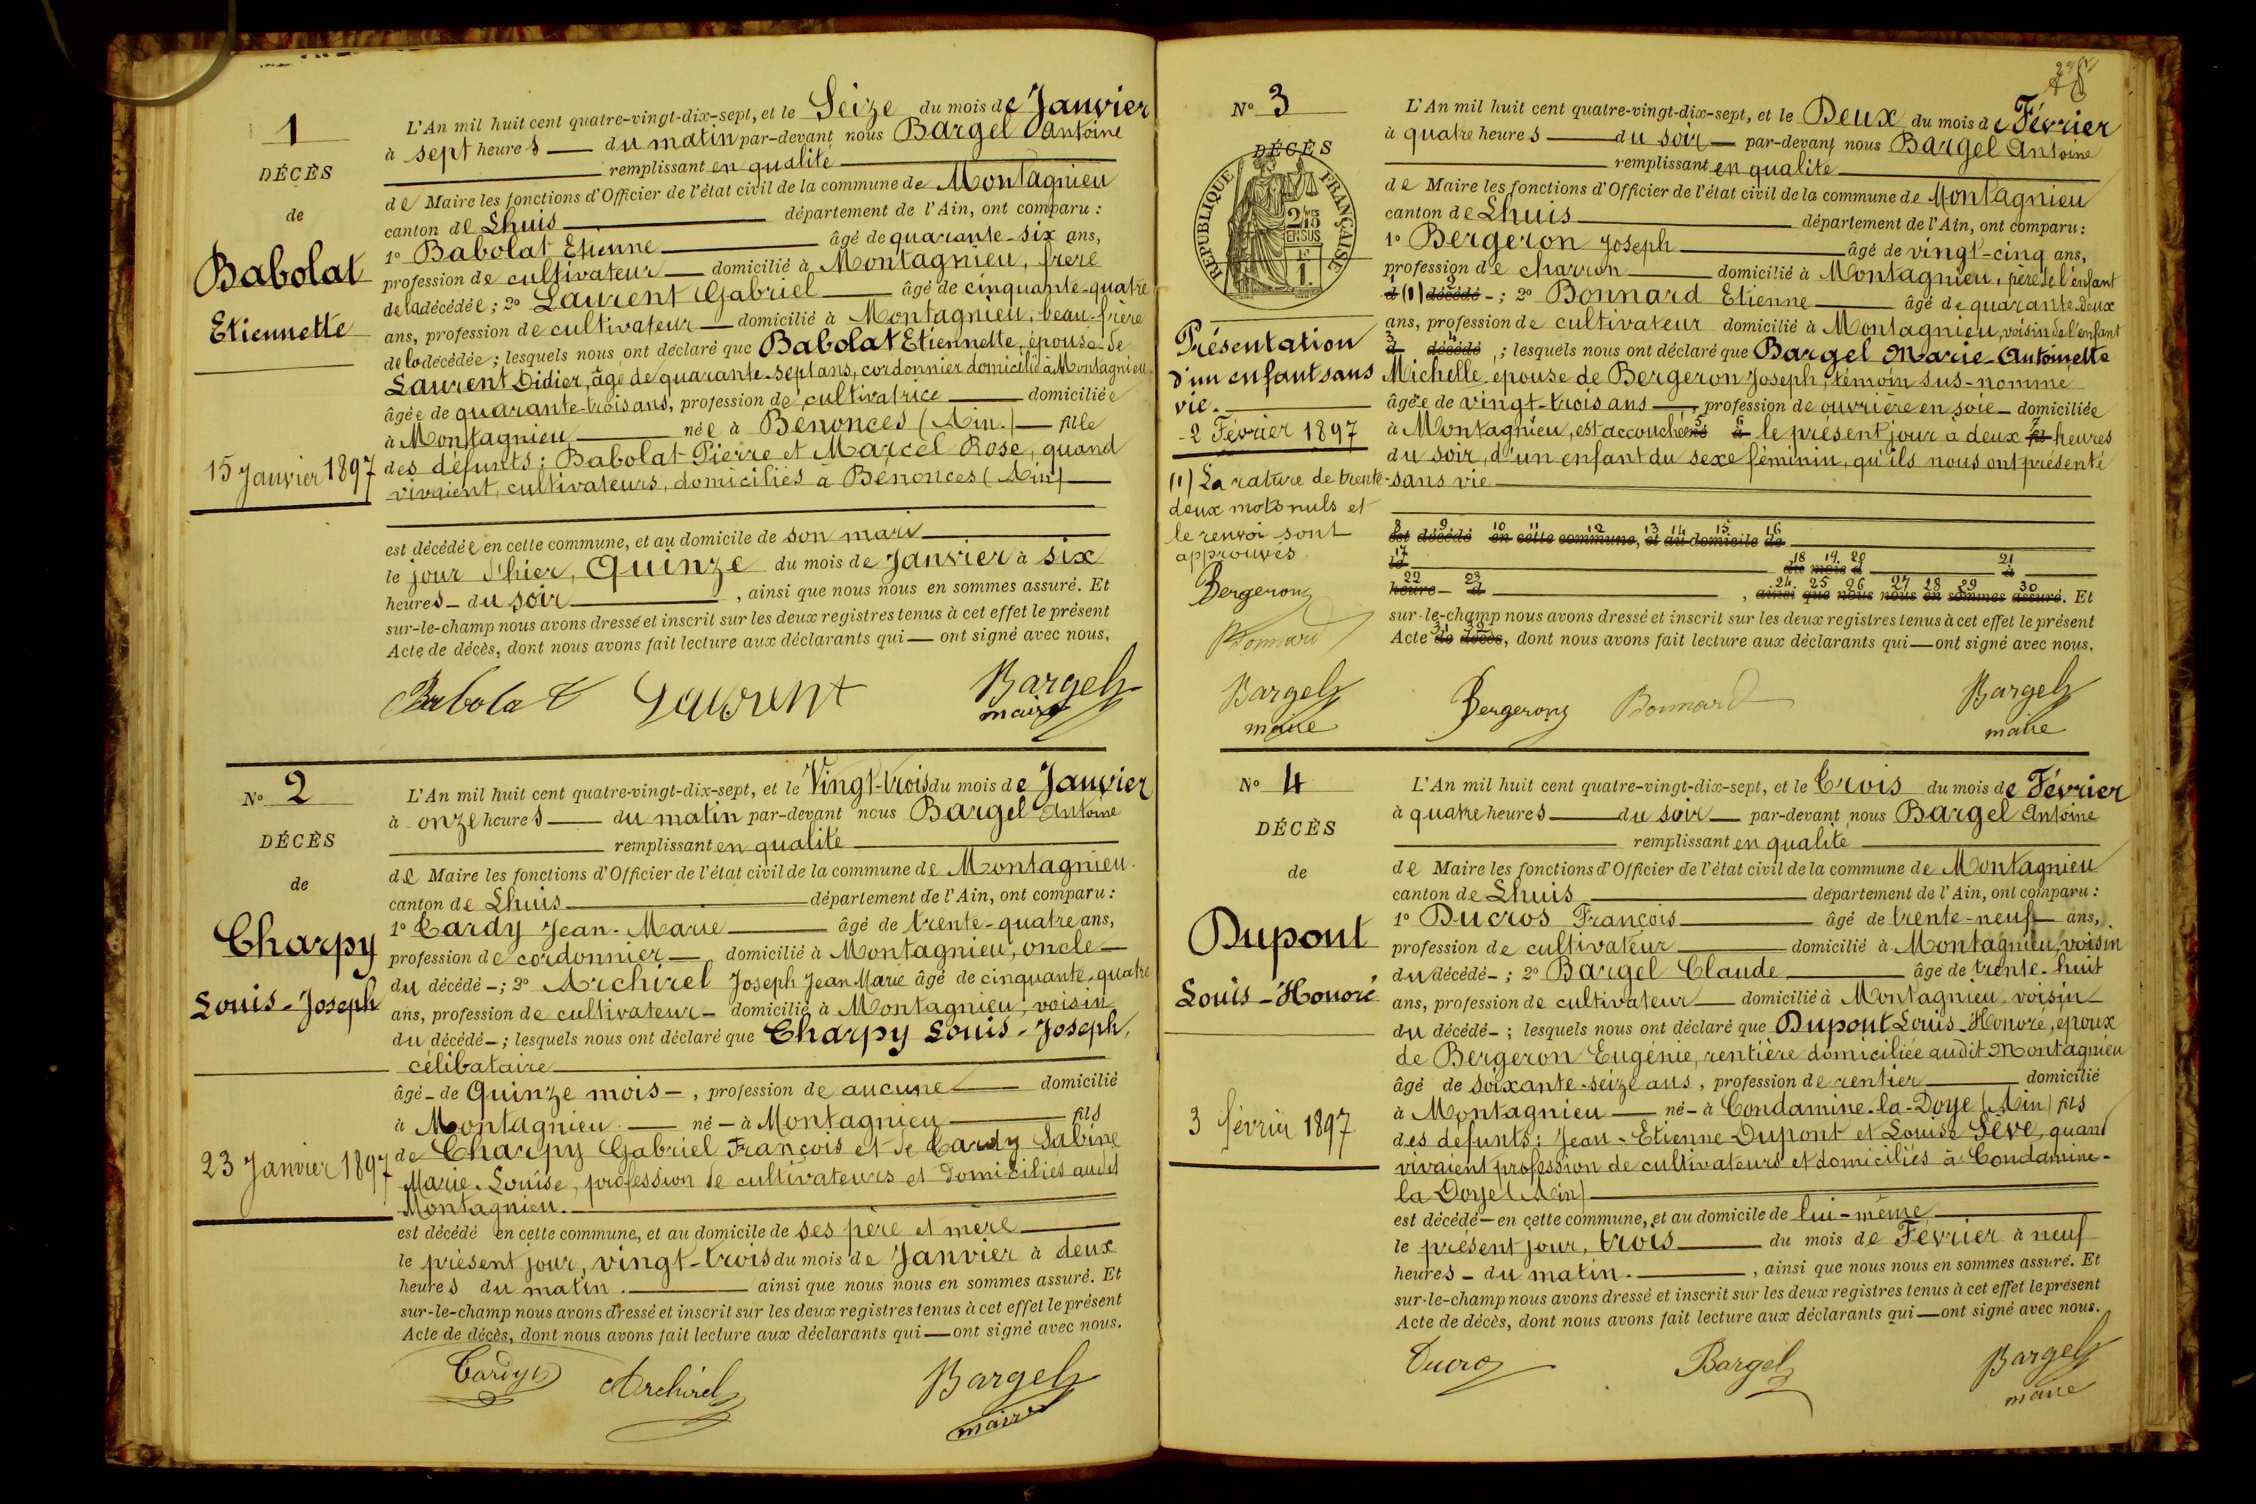 1
DÉCÈS
de
Babolat
Etiennette
15 Janvier 1897
L'An mil huit cent quatre-vingt-dix-sept, et le Seize du mois de Janvier
à sept heures du matin par-devant nous Bargel Antoine
remplissant en qualité
de Maire les fonctions d'Officier de l'état civil de la commune de Montagnieu
canton de Lhuis département de l'Ain, ont comparu :
1º Babolat Etienne âgé de quarante-six ans,
profession de cultivateur domicilié à Montagnieu, frère
de la décédée ; 2º Laurent Gabriel âgé de cinquante-quatre
ans, profession de cultivateur domicilié à Montagnieu, beau-frère
de la décédée ; lesquels nous ont déclaré que Babolat Etiennette, épouse de
Laurent Didier, âgé de quarante-sept ans, cordonnier domicilié à Montagnieu
âgée de quarante-trois ans, profession de cultivatrice domiciliée
à Montagnieu née à Bénonces (Ain) fille
des défunts : Babolat Pierre et Marcel Rose, quand
vivaient, cultivateurs, domiciliés à Bénonces (Ain)
est décédée en cette commune, et au domicile de son mari
le jour d'hier, Quinze du mois de Janvier à six
heures du soir , ainsi que nous nous en sommes assuré. Et
sur-le-champ nous avons dressé et inscrit sur les deux registres tenus à cet effet le présent
Acte de décès, dont nous avons fait lecture aux déclarants qui ont signé avec nous.
Babolat Laurent Bargel
maire
Nº 2
DÉCÈS
de
Charpy
Louis-Joseph
23 Janvier 1897
L'An mil huit cent quatre-vingt-dix-sept, et le Vingt-trois du mois de Janvier
à onze heures du matin par-devant nous Bargel Antoine
remplissant en qualité
de Maire les fonctions d'Officier de l'état civil de la commune de Montagnieu.
canton de Lhuis département de l'Ain, ont comparu :
1º Cardy Jean-Marie âgé de trente-quatre ans,
profession de cordonnier domicilié à Montagnieu, oncle
du décédé ; 2º Archirel Joseph Jean Marie âgé de cinquante-quatre
ans, profession de cultivateur domicilié à Montagnieu, voisin
du décédé ; lesquels nous ont déclaré que Charpy Louis-Joseph,
célibataire
âgé de Quinze mois , profession de aucune domicilié
à Montagnieu né à Montagnieu fils
de Charpy Gabriel François et de Cardy Sabine
Marie-Louise, profession de cultivateurs et domiciliés audit
Montagnieu.
est décédé en cette commune, et au domicile de ses père et mère
le présent jour, vingt-trois du mois de Janvier à deux
heures du matin. ainsi que nous nous en sommes assuré. Et
sur-le-champ nous avons dressé et inscrit sur les deux registres tenus à cet effet le présent
Acte de décès, dont nous avons fait lecture aux déclarants qui ont signé avec nous.
Cardy Archirel Bargel
maire
Nº 3
DÉCÈS
RÉPUBLIQUE FRANÇAISE
Présentation
d'un enfant sans
vie.
2 Février 1897
(1) La rature de trente-
deux mots nuls et
le renvoi sont
approuvés
Bergeron
Bonnard
Bargel
maire
L'An mil huit cent quatre-vingt-dix-sept, et le Deux du mois de Février
à quatre heures du soir par-devant nous Bargel Antoine
remplissant en qualité
de Maire les fonctions d'Officier de l'état civil de la commune de Montagnieu
canton de Lhuis département de l'Ain, ont comparu :
1º Bergeron Joseph âgé de vingt-cinq ans,
profession de charron domicilié à Montagnieu, père de l'enfant
d (1) décédé ; 2º Bonnard Etienne âgé de quarante-deux
ans, profession de cultivateur domicilié à Montagnieu, voisin de l'enfant
d décédé ; lesquels nous ont déclaré que Bargel Marie-Antoinette
Michelle, épouse de Bergeron Joseph, témoin sus-nommé
âgée de vingt-trois ans , profession de ouvrière en soie domiciliée
à Montagnieu, est accouchée né à le présent jour à deux fil heures
du soir, d'un enfant du sexe féminin, qu'ils nous ont présenté
sans vie
8 9 10 11 12 13 14 15 16
est décédé en cette commune, et au domicile de
17 18 19 20 21
le du mois d à
22 23 24 25 26 27 28 29 30
heure d , ainsi que nous nous en sommes assuré. Et
sur-le-champ nous avons dressé et inscrit sur les deux registres tenus à cet effet le présent
Acte de décès, dont nous avons fait lecture aux déclarants qui ont signé avec nous.
Bergeron Bonnard Bargel
maire
Nº 4
DÉCÈS
de
Dupont
Louis-Honoré
3 février 1897
L'An mil huit cent quatre-vingt-dix-sept, et le Trois du mois de Février
à quatre heures du soir par-devant nous Bargel Antoine
remplissant en qualité
de Maire les fonctions d'Officier de l'état civil de la commune de Montagnieu
canton de Lhuis département de l'Ain, ont comparu :
1º Ducros François âgé de trente-neuf ans,
profession de cultivateur domicilié à Montagnieu, voisin
du décédé ; 2º Bargel Claude âgé de trente-huit
ans, profession de cultivateur domicilié à Montagnieu, voisin
du décédé ; lesquels nous ont déclaré que Dupont Louis-Honoré, époux
de Bergeron Eugénie, rentière domiciliée audit Montagnieu
âgé de soixante-seize ans, profession de rentier domicilié
à Montagnieu né à Condamine-la-Doye (Ain) fils
des défunts : Jean-Etienne Dupont et Louise Sève, quand
vivaient profession de cultivateurs et domiciliés à Condamine-
la Doye (Ain)
est décédé en cette commune, et au domicile de lui-même
le présent jour, trois du mois de Février à neuf
heures du matin. , ainsi que nous nous en sommes assuré. Et
sur-le-champ nous avons dressé et inscrit sur les deux registres tenus à cet effet le présent
Acte de décès, dont nous avons fait lecture aux déclarants qui ont signé avec nous.
Ducros Bargel Bargel
maire